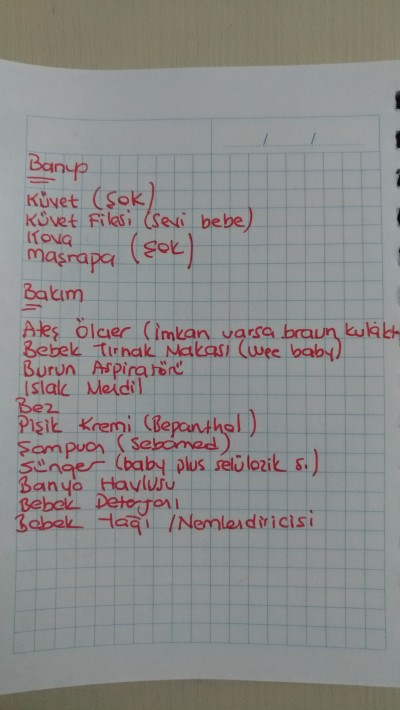 / /
Banyo
Küvet (Şok)
Küvet Filesi (sevi bebe)
Kova
Maşrapa (Şok)
Bakım
Ateş Ölçer (imkan varsa braun kulakta
Bebek Tırnak Makası (wee baby)
Burun Aspiratörü
Islak Mendil
Bez
Pişik Kremi (Bepanthol)
Şampuan (Sebamed)
Sünger (baby plus selülozik s.)
Banyo Havlusu
Bebek Deterjanı
Bebek Yağı /Nemlendiricisi